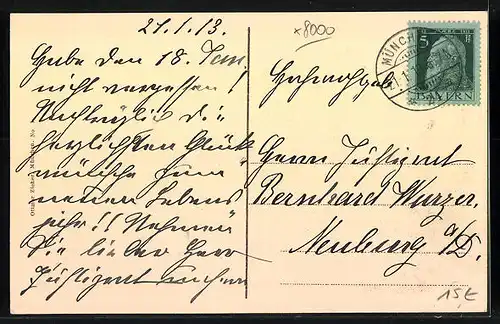 21.1.13.
Habe den 18. Jan.
nicht vergessen!
Nachträglich die
herzlichsten Glück
wünsche zum
neuen Lebens
jahr!! Nehmen
Sie lieber Herr
Justizrat
x8000
5
BAYERN
MÜNCH
Hochwohlgeb.
Herrn Justizrat
Bernhard Wurzer.
Neuburg a/D.
15,-